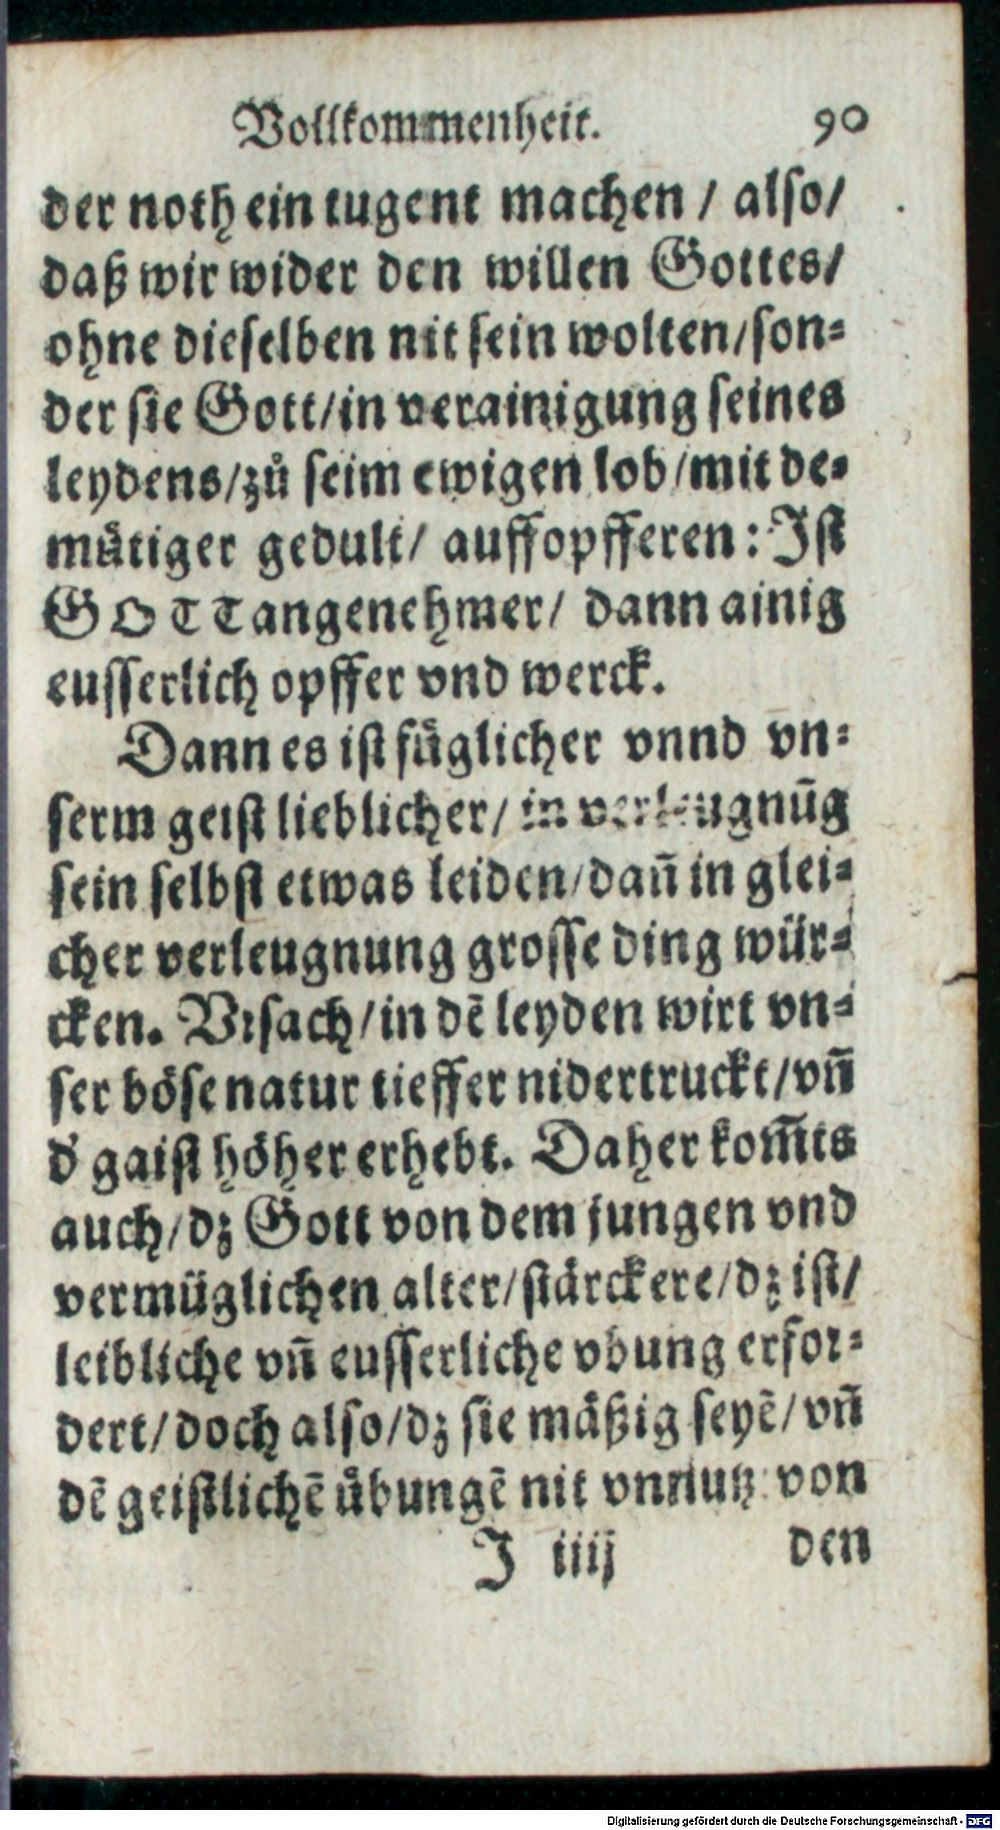 Vollkommenheit. 90
der noth ein tugent machen / also/
daß wir wider den willen Gottes/
ohne dieselben nit sein wolten/son-
der sie Gott/in verainigung seines
leydens/zů seim ewigen lob/mit de-
mütiger gedult/ auffopfferen: Ist
GOTT angenehmer/ dann ainig
eusserlich opffer vnd werck.
Dann es ist füglicher vnnd vn-
serm geist lieblicher/ in verleugnūg
sein selbst etwas leiden/dañ in glei-
cher verleugnung grosse ding wür-
cken. Vrsach/in dē leyden wirt vn-
ser böse natur tieffer nidertruckt/vñ
d' gaist höher erhebt. Daher kom̃ts
auch/dz Gott von dem jungen vnd
vermüglichen alter/stärckere/dz ist/
leibliche vñ eusserliche vbung erfor-
dert/doch also/dz sie mäßig seyē/vñ
dē geistlichē übungē nit vnnutz von
J iiij den
Digitalisierung gefördert durch die Deutsche Forschungsgemeinschaft - DFG